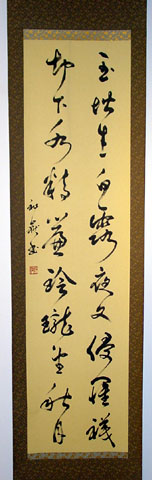 玉堦生白露夜久侵羅襪
却下水精簾玲瓏望秋月